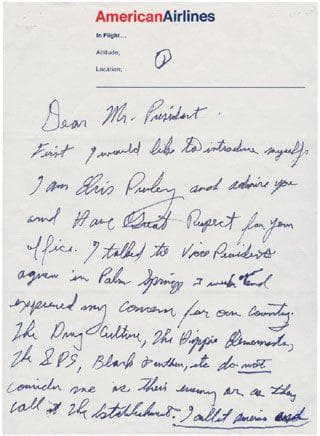 AmericanAirlines
In Flight...
Altitude;
Location;
1
Dear Mr. President.
First I would like to introduce myself.
I am Elvis Presley and admire you
and Have Great Respect for your
office. I talked to Vice President
Agnew in Palm Springs 3 weeks ago and
expressed my concern for our country.
The Drug Culture, The Hippie Elements,
The SDS, Black Panthers, etc do not
consider me as their enemy or as they
call it the Establishment. I call it America and